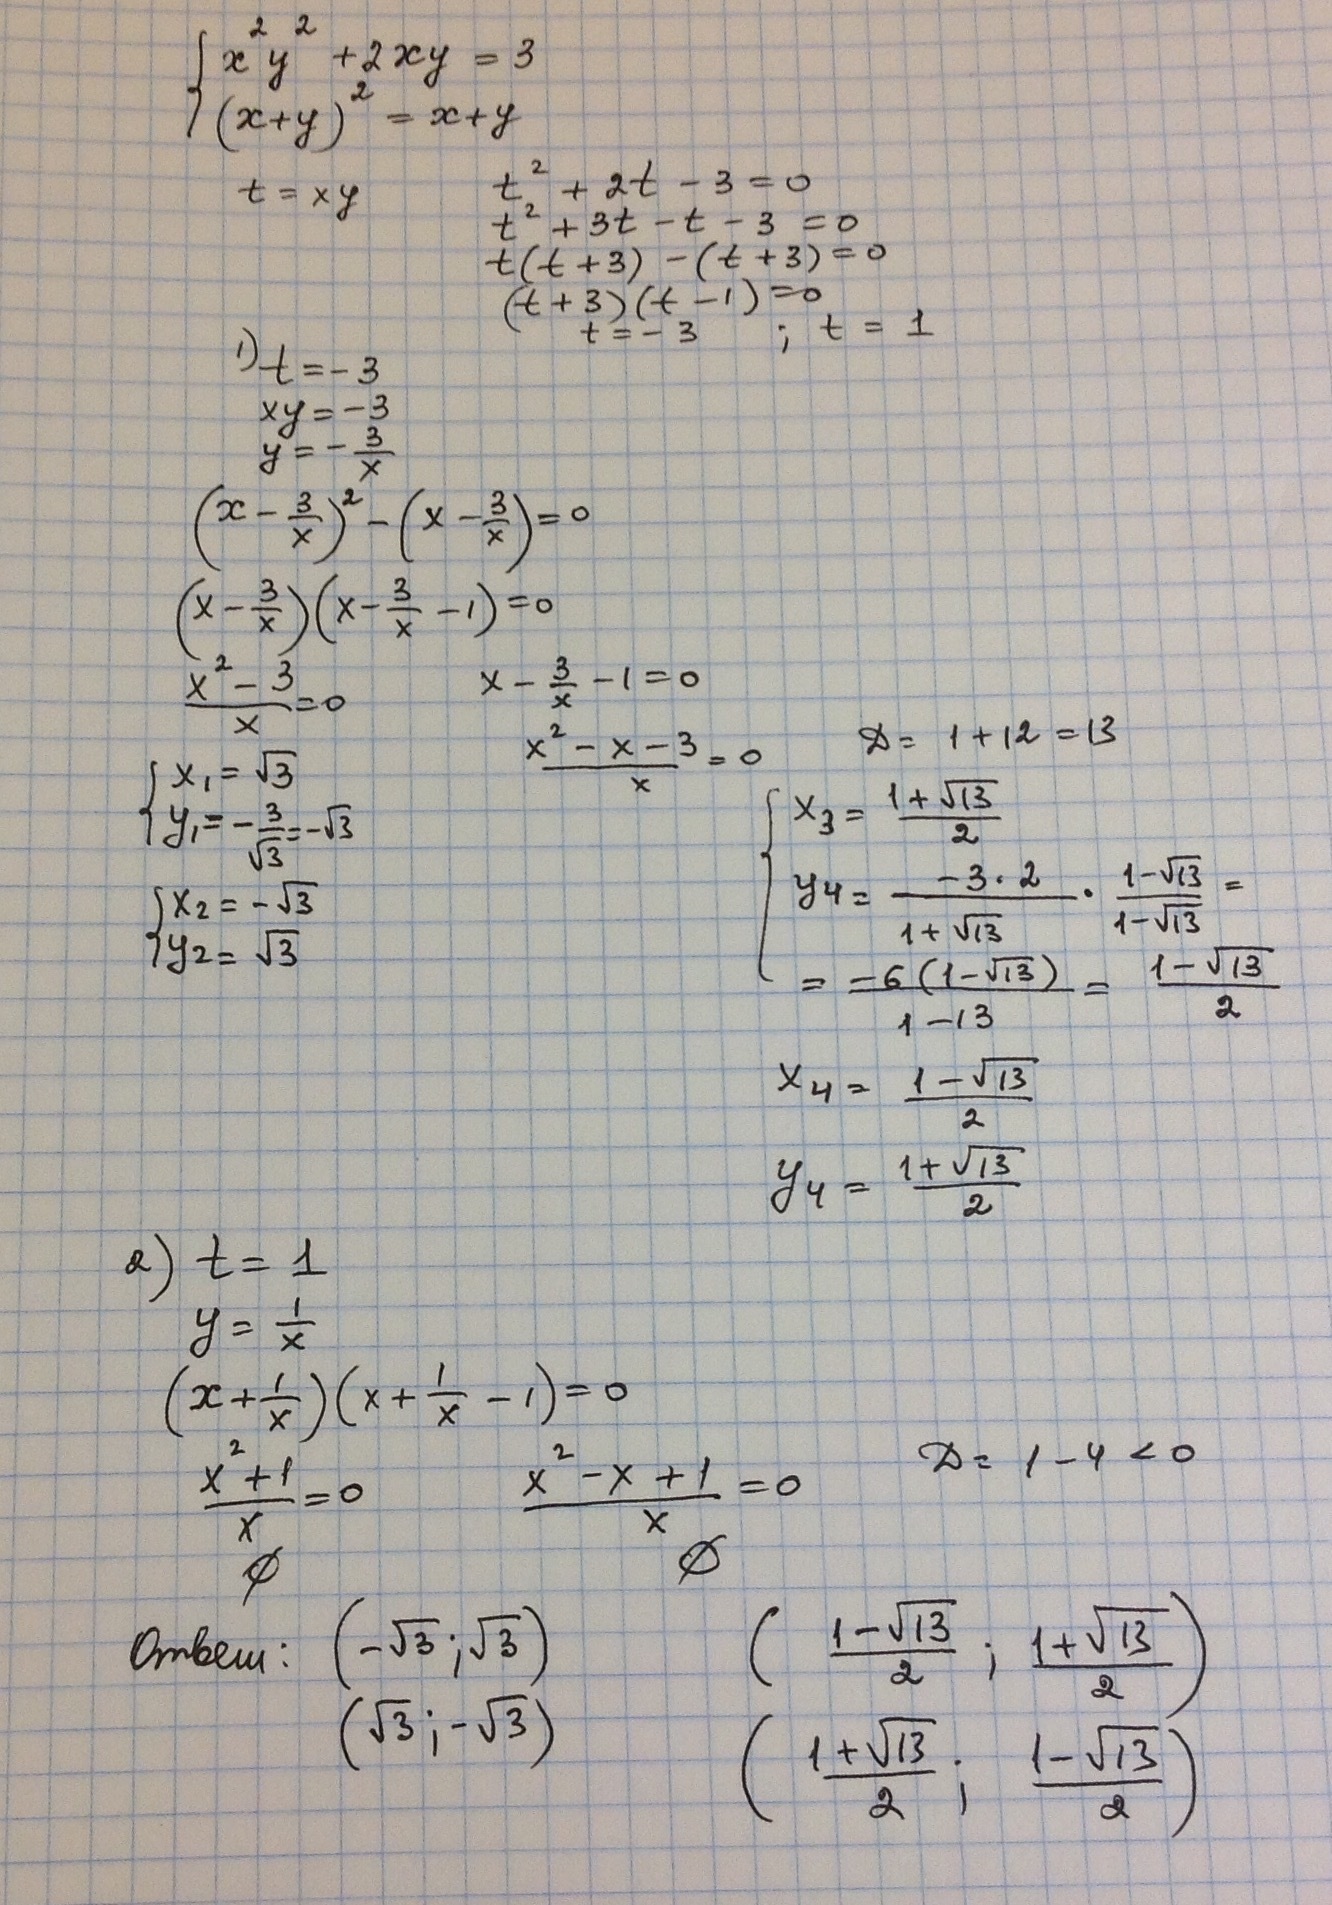 { x²y² + 2xy = 3
(x+y)² = x+y
t = xy
t² + 2t - 3 = 0
t² + 3t - t - 3 = 0
t(t+3) - (t+3) = 0
(t+3)(t-1) = 0
t = -3 ; t = 1
1) t = -3
xy = -3
y = -3/x
(x - 3/x)² - (x - 3/x) = 0
(x - 3/x)(x - 3/x - 1) = 0
(x² - 3)/x = 0
{ x₁ = √3
y₁ = -3/√3 = -√3
{ x₂ = -√3
y₂ = √3
x - 3/x - 1 = 0
(x² - x - 3)/x = 0
D = 1 + 12 = 13
{ x₃ = (1+√13)/2
y₄ = (-3·2)/(1+√13) · (1-√13)/(1-√13) =
= (-6(1-√13))/(1-13) = (1-√13)/2
x₄ = (1-√13)/2
y₄ = (1+√13)/2
2) t = 1
y = 1/x
(x + 1/x)(x + 1/x - 1) = 0
(x² + 1)/x = 0
∅
(x² - x + 1)/x = 0
∅
D = 1 - 4 < 0
Ответ: (-√3 ; √3) ((1-√13)/2 ; (1+√13)/2)
(√3 ; -√3) ((1+√13)/2 ; (1-√13)/2)